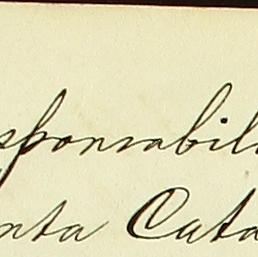 sponsabili
nta Cata